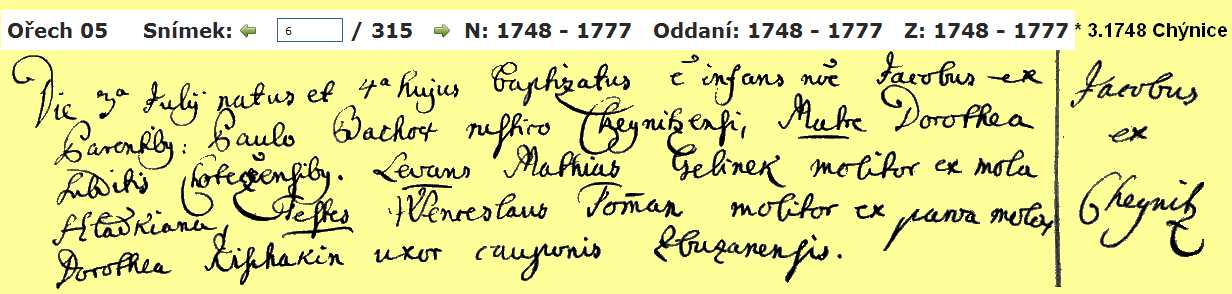 Ořech 05 Snímek: 6 / 315 N: 1748 - 1777 Oddaní: 1748 - 1777 Z: 1748 - 1777 * 3.1748 Chýnice
Die 3ª Julij natus et 4ª hujus baptizatus ē infans noē Jacobus ex
Parentiby: Paulo Bachor rustico Cheynitzensi, Matre Dorothea
Subditis Chotečensiby. Levans Mathias Gelinek molitor ex mola
Hladkiana, Testes Wenceslaus Toman molitor ex parva mola
Dorothea uxor cauponis Zbuzanensis.
Jacobus
ex
Cheynitz